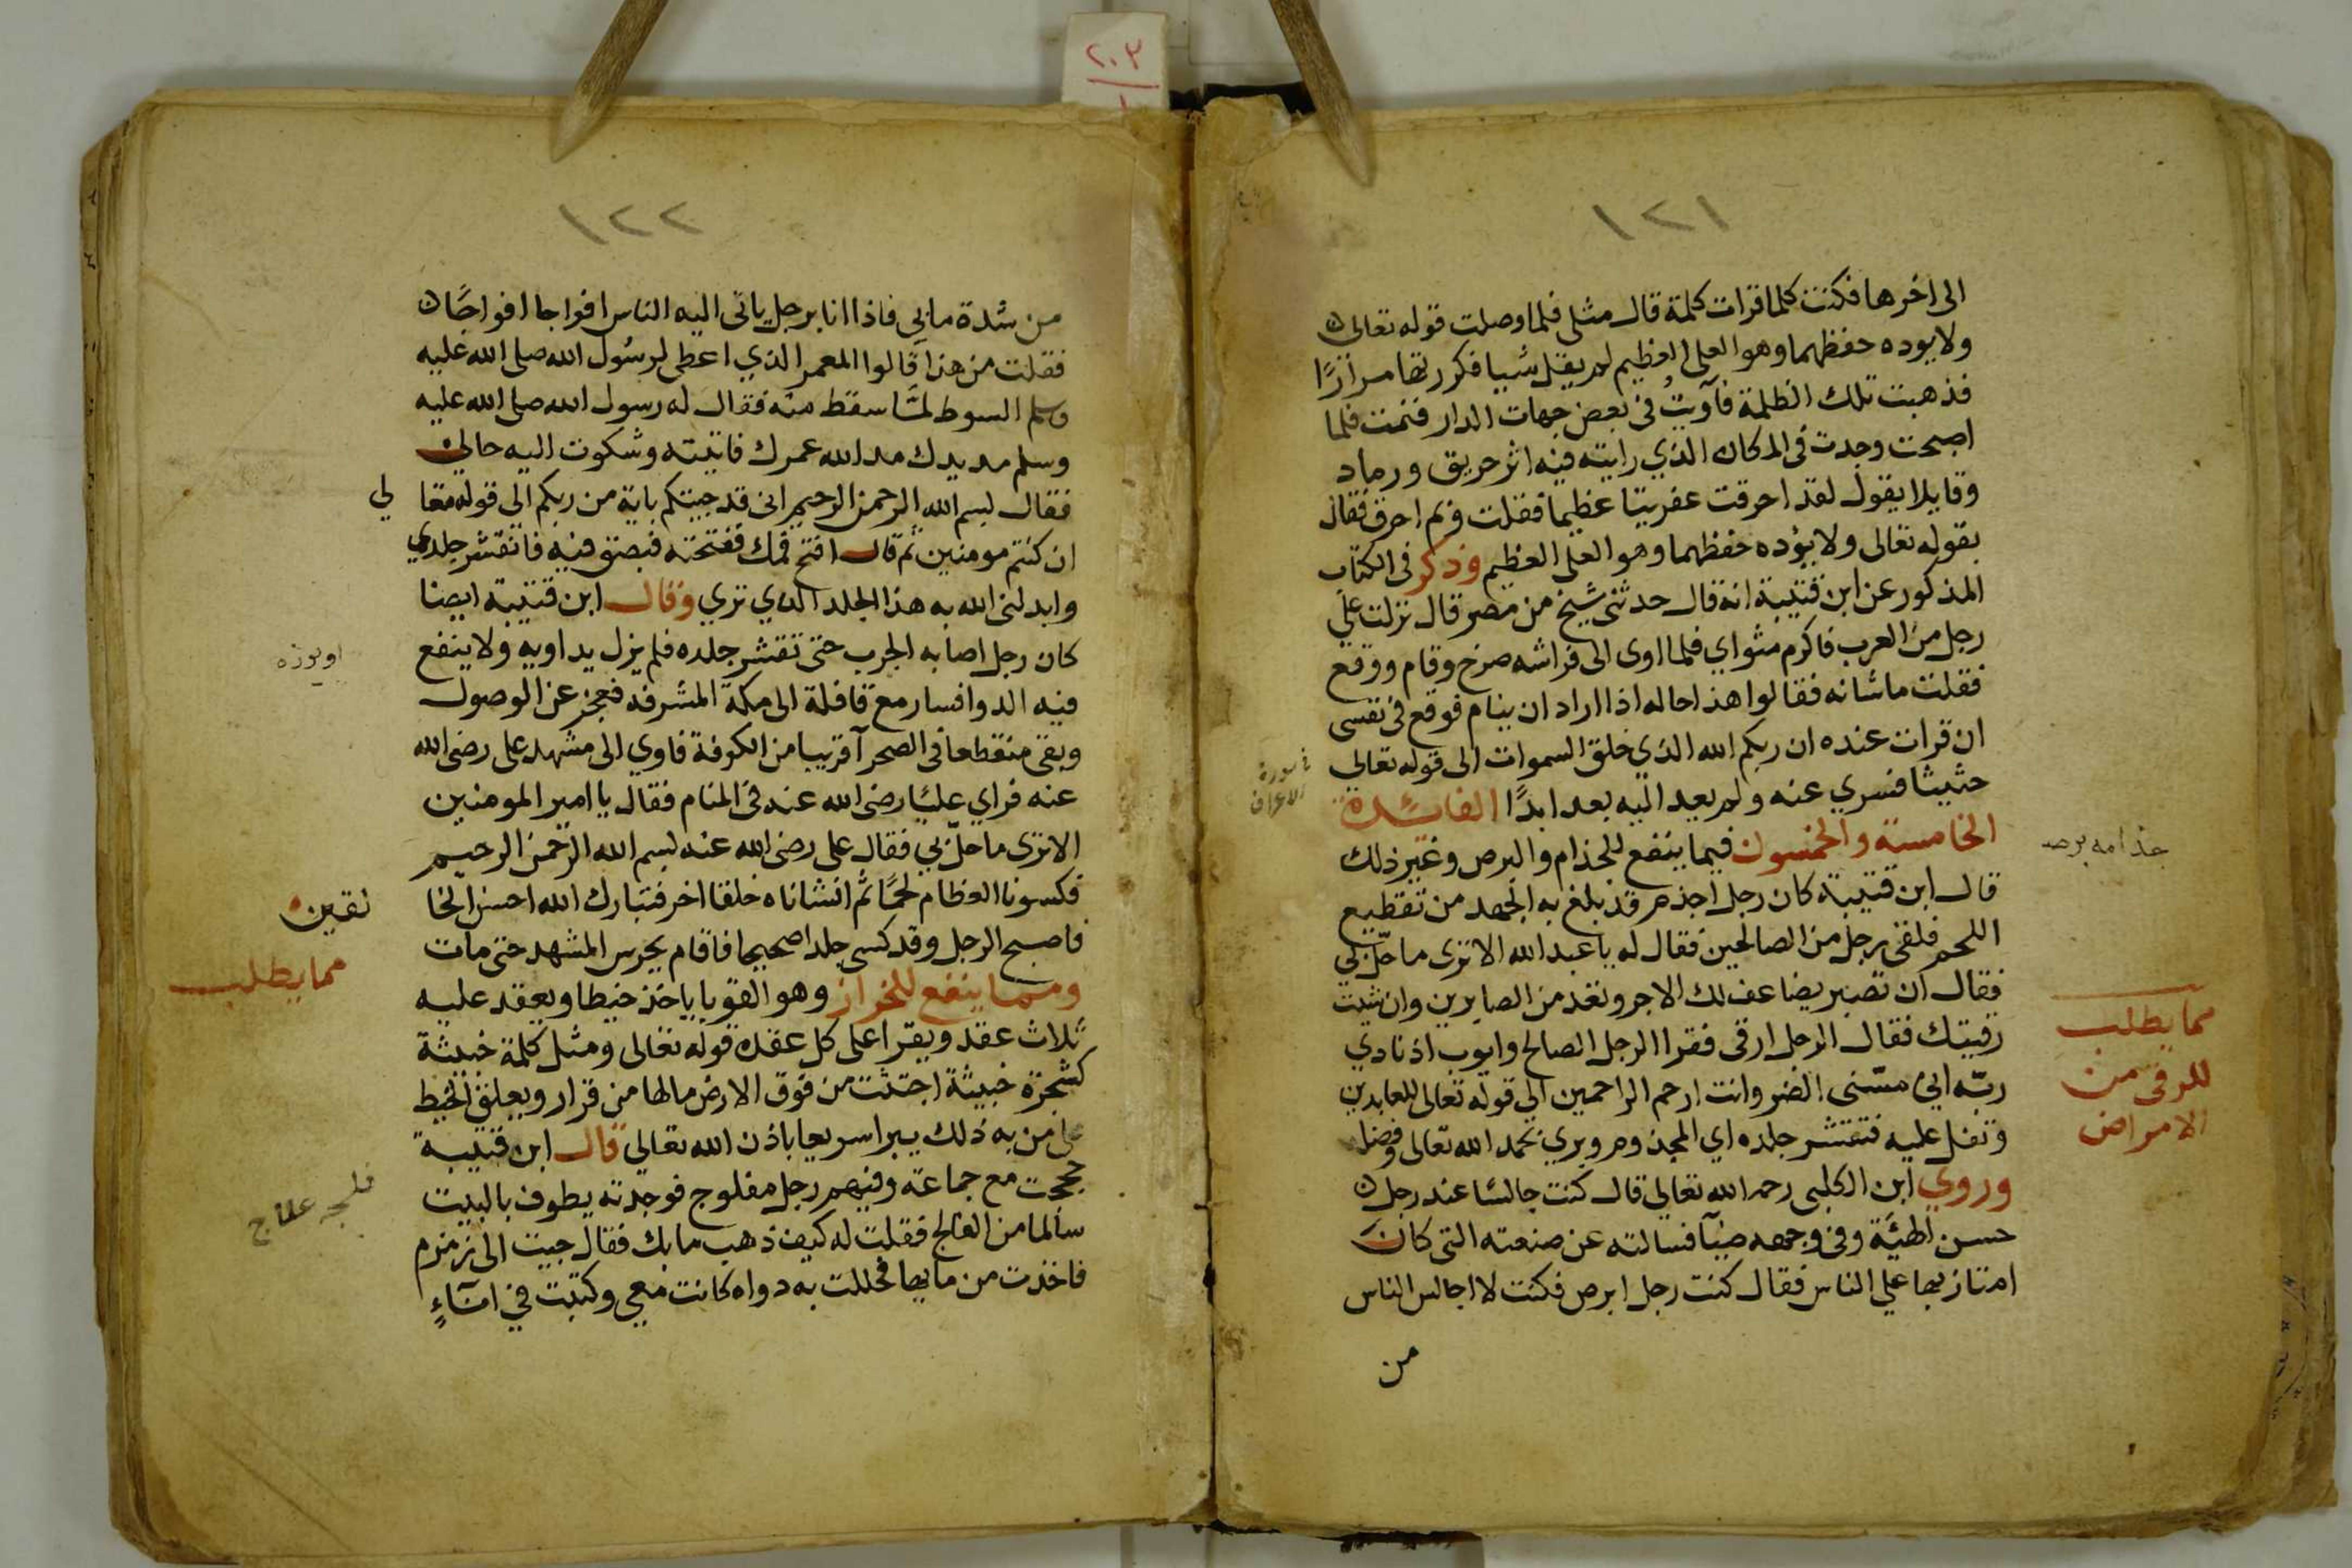 ٢٠٣
١٢١
الى اخرها فكنت كلما قرات كلمة قال مثلى فلما وصلت قوله تعالى
ولا يوده حفظهما وهو العلى العظيم لم يقل شيا فكررتها مرارًا
فذهبت تلك الظلمة فآويت فى بعض جهات الدار فنمت فلما
اصبحت وجدت فى المكان الذي رايته فيه اثر حريق ورماد
وقايلا يقول لقد احرقت عفريتا عظيما فقلت وبم احرق فقال
بقوله تعالى ولا يؤده حفظهما وهو العلى العظيم وذكر فى الكتاب
المذكور عن ابن قتيبة انه قال حدثنى شيخ من مصر قال نزلت علي
رجل من العرب فاكرم مثواي فلما اوى الى فراشه صرخ وقام ووقع
فقلت ما شانه فقالوا هذا حاله اذا اراد ان ينام فوقع فى نفسى
ان قرات عنده ان ربكم الله الذي خلق السموات الى قوله تعالي
حثيثا فسري عنه ولم يعد اليه بعد ابدًا الفائدة
الخامسة والخمسون فيما ينفع للجذام والبرص وغير ذلك
قال ابن قتيبة كان رجل اجذم قد بلغ به الجهد من تقطيع
اللحم فلقى رجل من الصالحين فقال له يا عبد الله الا ترى ما حلّ بي
فقال ان تصبر يضاعف لك الاجر وتعد من الصابرين وان شيت
رقيتك فقال الرجل ارقى فقرا الرجل الصالح وايوب اذ نادي
ربّه انى مسّنى الضر وانت ارحم الراحمين الى قوله تعالى للعابدين
وتفل عليه فتقشر جلده اي المجذوم وبري بحمد الله تعالى وفضله
وروي ابن الكلبى رحمه الله تعالى قال كنت جالسًا عند رجل
حسن الهيئة وفى وجهه ضيآ فسالته عن صنعته التى كان
امتاز بها علي الناس فقال كنت رجل ابرص فكنت لا اجالس الناس
من
فى سورة
الاعراف
جذامه برصه
مما يطلب
للرقى من
الامراض
١٢٢
من شدة ما بي فاذا انا برجل ياتى اليه الناس افواجا افواجًا
فقلت من هذا قالوا المعمر الذي اعطى لرسول الله صلى الله عليه
وسلم السوط لمّا سقط منه فقال له رسول الله صلى الله عليه
وسلم مد يدك مد الله عمرك فاتيته وشكوت اليه حالي
فقال بسم الله الرحمن الرحيم انى قد جيتكم باية من ربكم الى قوله تعا لي
ان كنتم مومنين ثم قال افتح فمك ففتحته فبصق فيه فانقشر جلدي
وابدلنى الله به هذا الجلد الذي تري وقال ابن قتيبة ايضا
كان رجل اصابه الجرب حتى تقشر جلده فلم يزل يداويه ولا ينفع
فيه الدوا فسار مع قافلة الى مكة المشرفه فعجز عن الوصول
وبقى منقطعا فى الصحرآ قريبا من الكوفة فاوي الى مشهد على رضى الله
عنه فراي عليًا رضى الله عنه فى المنام فقال يا امير المومنين
الا ترى ما حلّ بي فقال على رضى الله عنه بسم الله الرحمن الرحيم
فكسونا العظام لحمًا ثم انشاناه خلقا اخر فتبارك الله احسن الخا لقين
فاصبح الرجل وقد كسى جلدا صحيحا فاقام يحرس المشهد حتى مات
ومما ينفع للخزاز وهو القوبا ياخذ خيطا ويعقد عليه
ثلاث عقد ويقرا على كل عقده قوله تعالى ومثل كلمة خبيثة
كشجرة خبيثة اجتثت من فوق الارض مالها من قرار ويعلق الخيط
على من به ذلك يبرا سريعا باذن الله تعالي قال ابن قتيبة
حججت مع جماعة وفيهم رجل مفلوج فوجدته يطوف بالبيت
سالما من الفالج فقلت له كيف ذهب ما بك فقال جيت الى زمزم
فاخذت من مايها فحللت به دواه كانت معى وكتبت في انآءٍ
اويوزه
مما يطلب
فلجه علاج